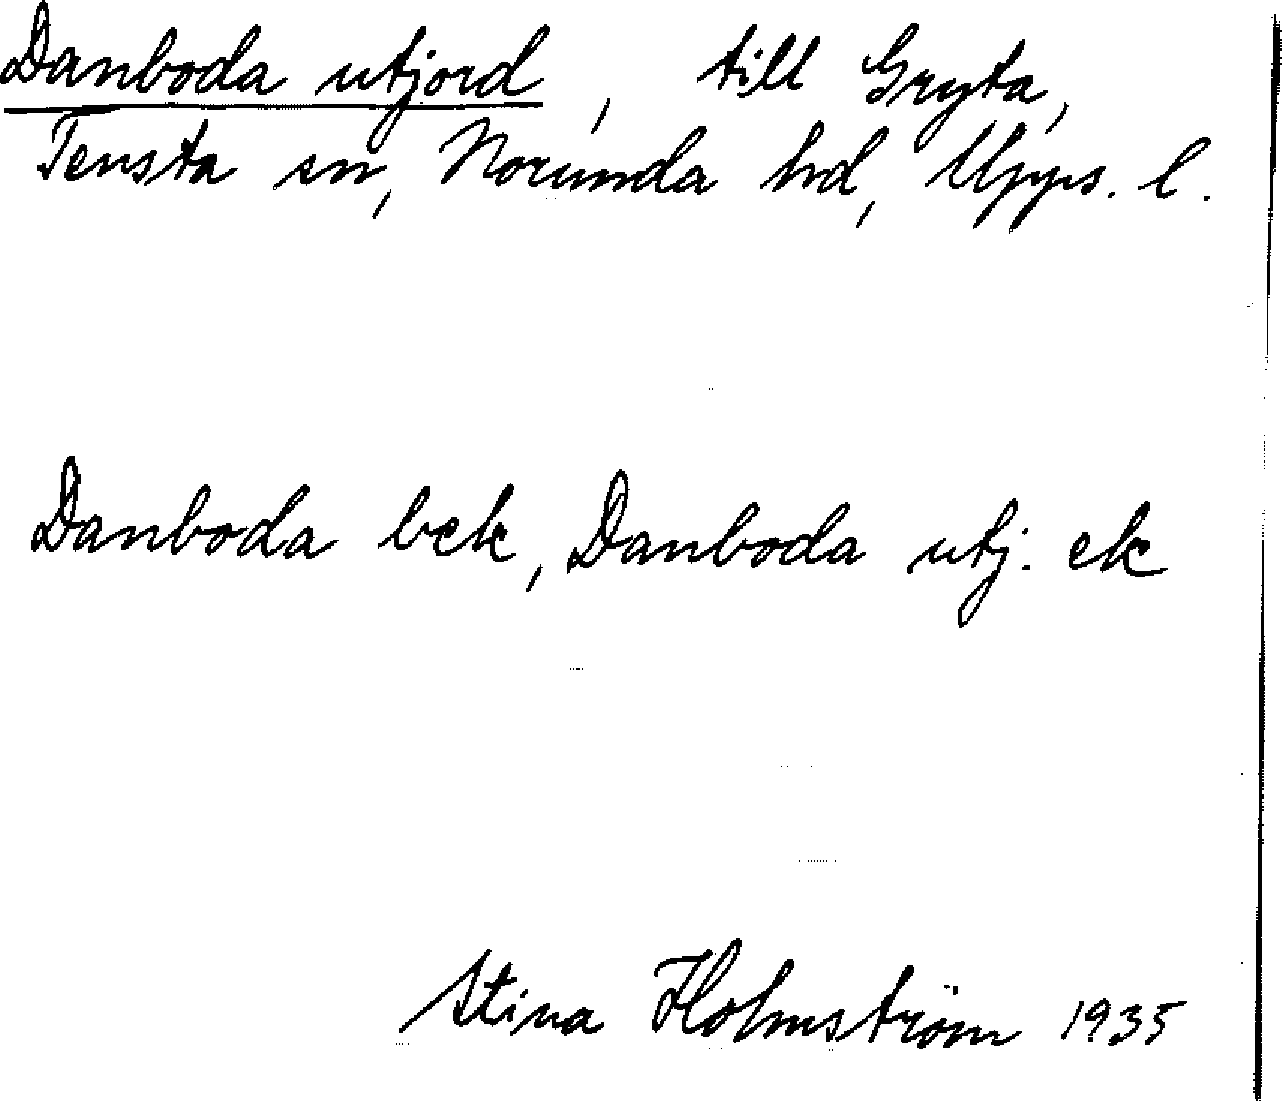 Danboda utjord, till Gryta,
Tensta sn, Norunda hd, Upps. l.
Danboda bek, Danboda utj. ek
Stina Holmström 1935